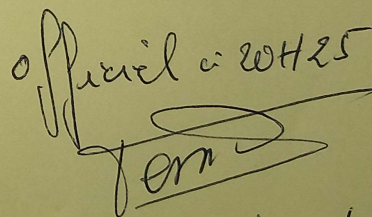 officiel à 20H25